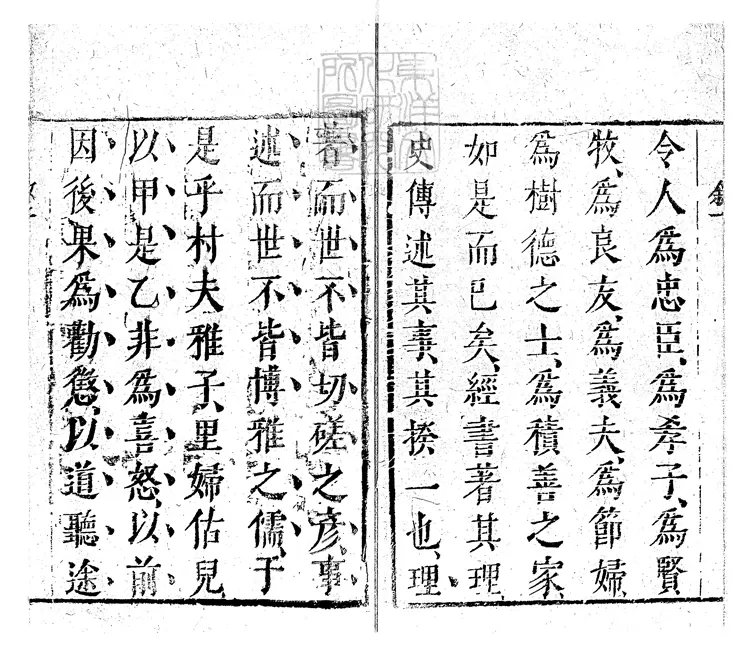 令人爲忠臣、爲孝子、爲賢
牧、爲良友、爲義夫、爲節婦、
爲樹德之士、爲積善之家、
如是而已矣、經書著其理、
史傳述其事、其揆一也、理
著而世不皆切磋之彥、事
述而世不皆博雅之儒、于
是乎村夫雅子、里婦估兒、
以甲是乙非爲喜怒、以前
因後果爲勸懲、以道聽途